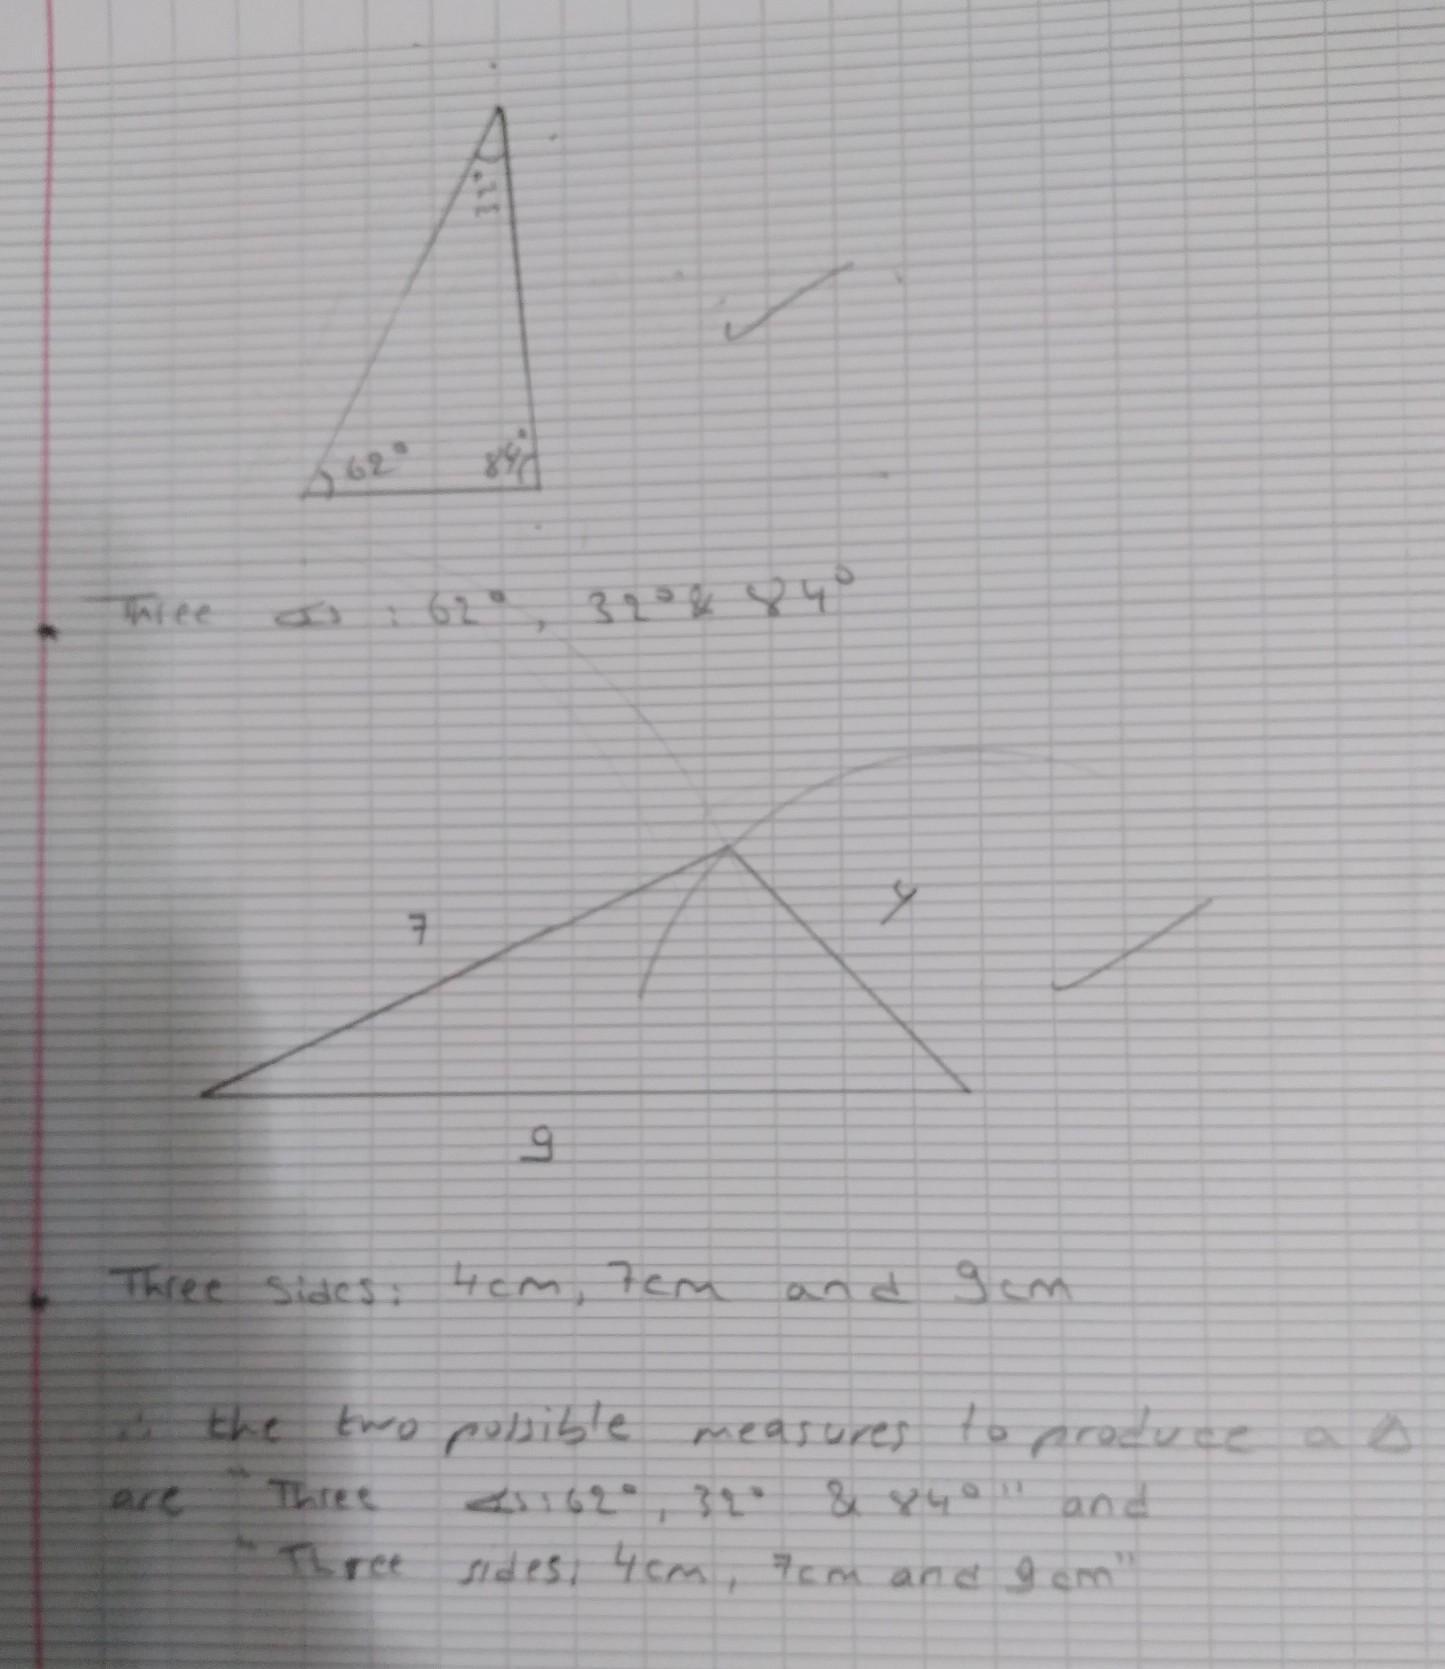 62° 84°
Three ∡s : 62°, 32° & 84°
7
4
9
Three sides: 4cm, 7cm and 9cm
∴ the two possible measures to produce a △
are "Three ∡s : 62°, 32° & 84°" and
"Three sides: 4cm, 7cm and 9cm"